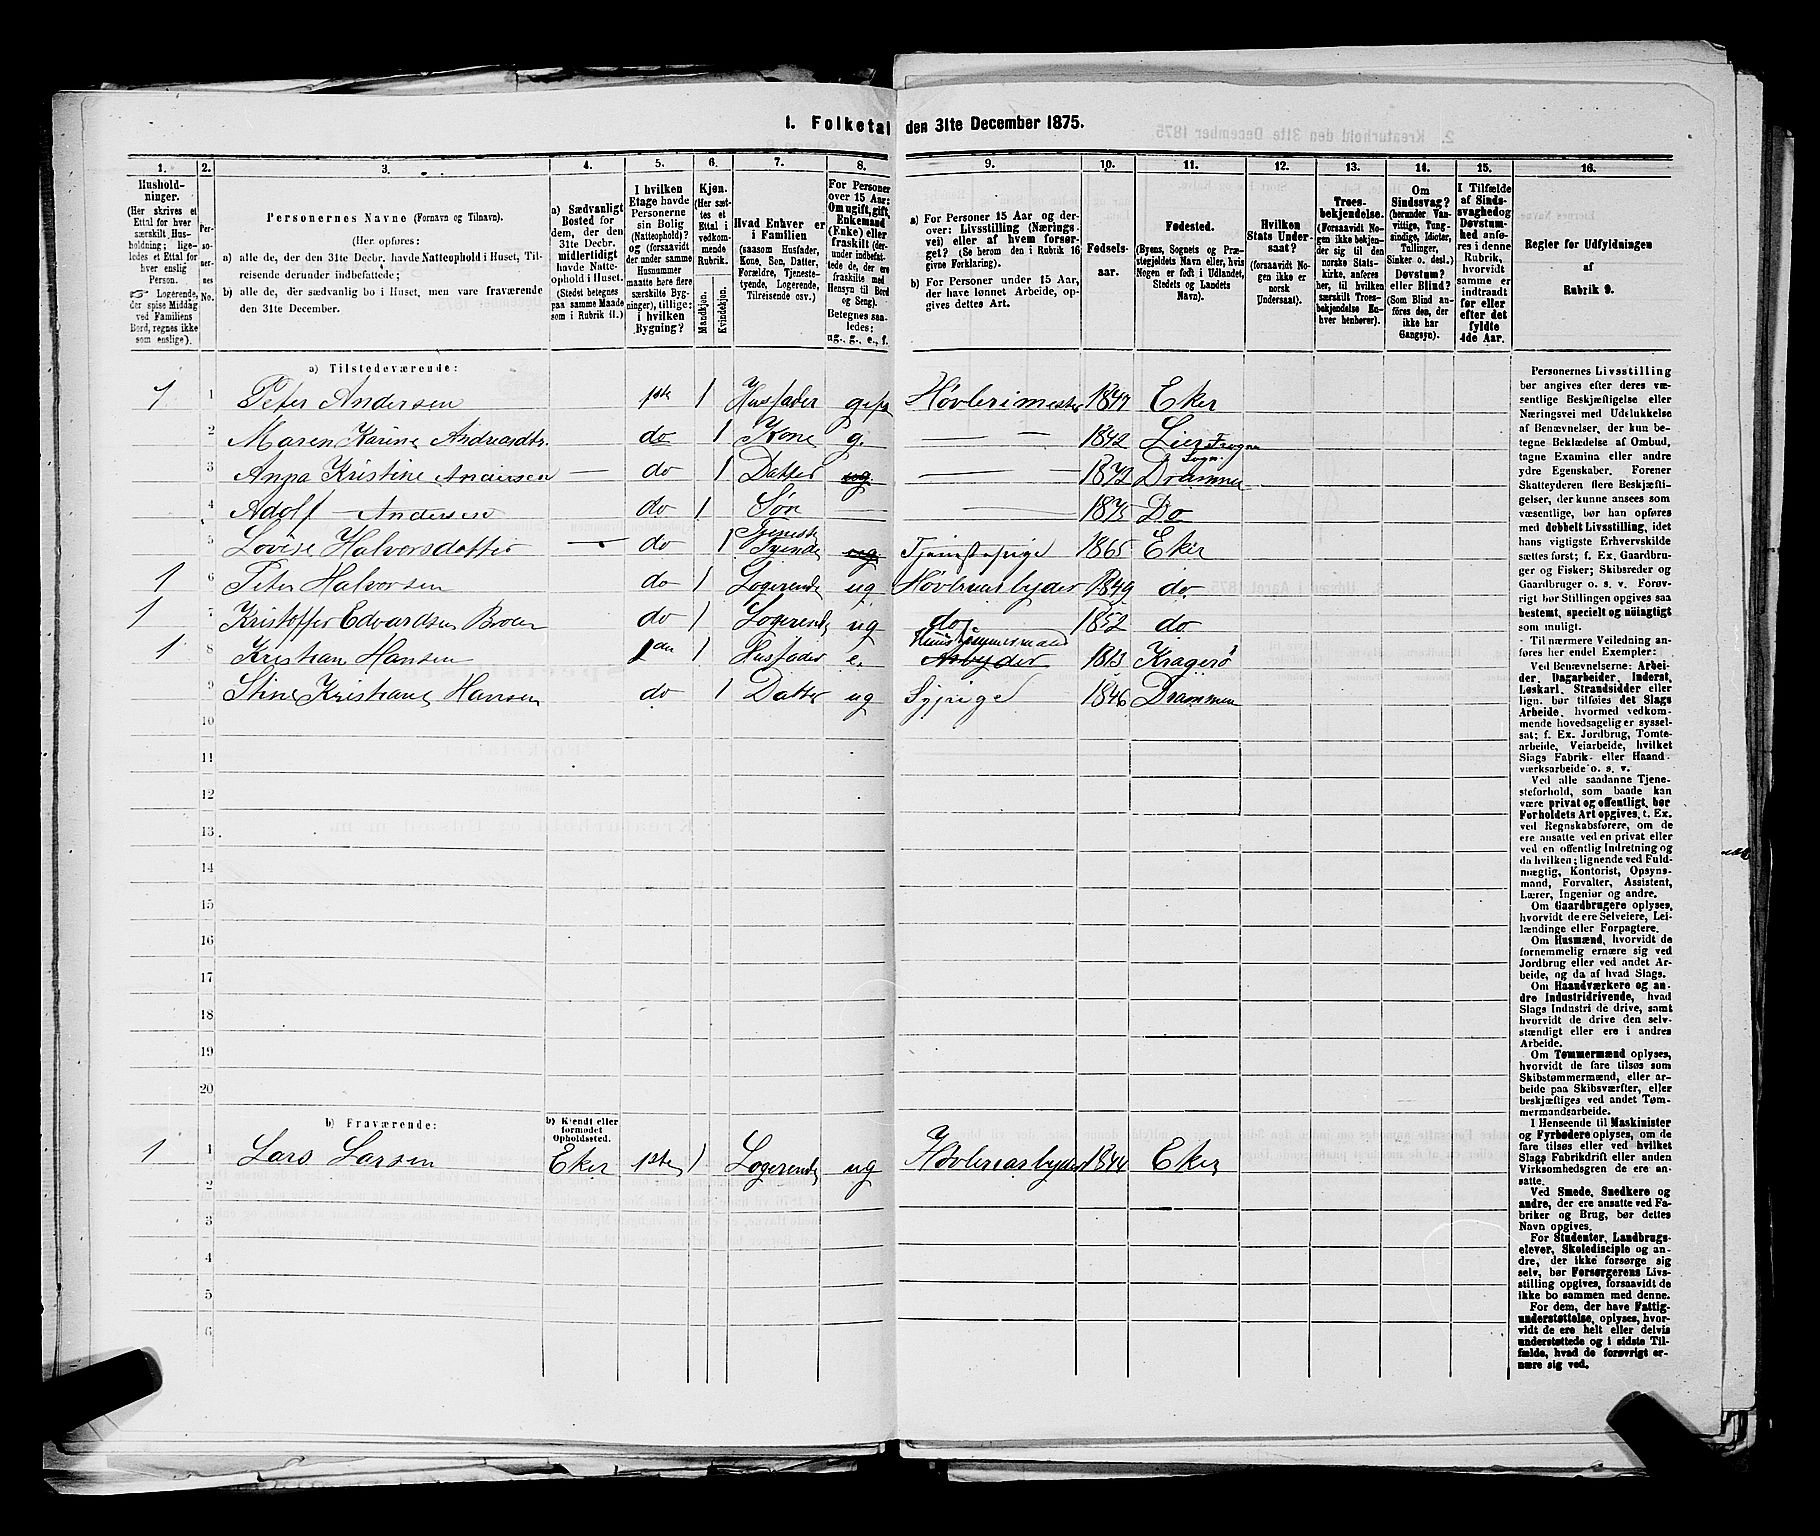 1. Folketal den 31te December 1875.
1. 2. 3. 4. 5. 6. 7. 8. 9. 10. 11. 12. 13. 14. 15. 16.
Husholdninger.
(Her skrives et
Ettal for hver
særskilt Husholdning;
ligeledes et Ettal for
hver enslig
Person.
Logerende,
der spise Middag
ved Familiens
Bord, regnes ikke
som enslige).
Personernes No.
Personernes Navne (Fornavn og Tilnavn).
(Her opføres:
a) alle de, der den 31te Decbr. havde Natteophold i Huset, Tilreisende
derunder indbefattede;
b) alle de, der sædvanlig bo i Huset, men vare fraværende
den 31te December.
a) Sædvanligt
Bosted for
dem, der den
31te Decbr.
midlertidigt
havde Natteophold
i Huset.
(Stedet betegnes
paa samme Maade
som i Rubrik 11.)
I hvilken
Etage havde
Personerne
sin Bolig
(Natteophold)?
og (forsaavidt
der under samme
Husnummer
maatte høre flere
særskilte Bygninger),
tillige:
i hvilken
Bygning?
Kjøn.
(Her sættes
et
Ettal i
vedkommende
Rubrik.
Mandkjøn.
Kvindekjøn.
Hvad Enhver er
i Familien
(saasom Husfader,
Kone, Søn, Datter,
Forældre, Tjenestetyende,
Logerende,
Tilreisende osv.)
For Personer
over 15 Aar:
Om ugift, gift,
Enkemand
(Enke) eller
fraskilt (derunder
indbefattede
de, der ere
fraskilte med
Hensyn til Bord
og Seng).
Betegnes saaledes:
ug., g., e., f.
a) For Personer 15 Aar og derover:
Livsstilling (Næringsvei)
eller af hvem forsørget?
(Se herom den i Rubrik 16
givne Forklaring).
b) For Personer under 15 Aar,
der have lønnet Arbeide, opgives
dettes Art.
Fødselsaar.
Fødested.
(Byens, Sognets og Præstegjeldets
Navn eller, hvis
Nogen er født i Udlandet,
Stedets og Landets
Navn).
Hvilken
Stats Undersaat?
(forsaavidt Nogen
ikke er
norsk
Undersaat).
Troesbekjendelse.
(Forsaavidt Nogen
ikke bekjender
sig til den
norske Statskirke,
anføres
her, til hvilken
særskilt Troesbekjendelse
Enhver
henhører).
Om
Sindssvag?
(herunder Vanvittige,
Tungsindige,
Idioter,
Tullinger,
Sinker o. desl.)
Døvstum?
eller Blind?
(Som Blind anføres
den, der
ikke har
Gangsyn).
I Tilfælde
af Sindssvaghed
og
Døvstumhed
anføres
i denne
Rubrik,
hvorvidt
samme er
indtraadt
før eller
efter det
fyldte
4de Aar.
Regler for Udfyldningen
af
Rubrik 9.
a) Tilstedeværende:
1 1 Peter Andersen 1ste 1 Husfader gift Høvlerimester 1847 Eker
2 Maren Karine Andreasdtr. do 1 Kone g. — — 1842 Lier Frogner Sogn.
3 Anna Kristine Andersen — do 1 Datter ug — — 1872 Drammen
4 Adolf Andersen do 1 Søn — — 1875 Do
5 Lovise Halvorsdatter — do 1 Tjeneste Tyende ug Tjenestepige 1865 Eker
1 6 Peter Halvorsen do 1 Logerende ug Høvleriarbeyder 1849 do
1 7 Kristoffer Edvardsen Broen do 1 Logerende ug do 1852 do
1 8 Kristian Hansen 1 Husfader e. Arbyder 1813 Kragerø
9 Stine Kristiane Hansen do 1 Datter ug Sypige 1846 Drammen
10
11
12
13
14
15
16
17
18
19
20
b) Fraværende:
b) Kjendt eller
formodet
Opholdssted.
1 1 Lars Larsen Eker 1ste 1 Logerende ug Høvleriarbyder 1844 Eker
2
3
4
5
6
Personernes Livsstilling
bør angives efter deres væsentlige
Beskjæftigelse eller
Næringsvei med Udelukkelse
af Benævnelser, der kun betegne
Beklædelse af Ombud,
tagne Examina eller andre
ydre Egenskaber. Forener
Skatteyderen flere Beskjæftigelser,
der kunne ansees som
væsentlige, bør han opføres
med dobbelt Livsstilling, idet
hans vigtigste Erhvervskilde
sættes først; f. Ex. Gaardbruger
og Fisker; Skibsreder og
Gaardbruger o. s. v. Forøvrigt
bør Stillingen opgives saa
bestemt, specielt og nøiagtigt
som muligt.
Til nærmere Veiledning anføres
her endel Exempler:
Ved Benævnelserne: Arbeider,
Dagarbeider, Inderst,
Løskarl, Strandsidder eller
lign. bør tilføies det Slags
Arbeide, hvormed vedkommende
hovedsagelig er sysselsat;
f. Ex. Jordbrug, Tomtearbeide,
Veiarbeide, hvilket
Slags Fabrik- eller Haandværksarbeide
o. s. v.
Ved alle saadanne Tjenesteforhold,
som baade kan
være privat og offentligt, bør
Forholdets Art opgives, t. Ex.
ved Regnskabsførere, om de
ere ansatte ved en privat eller
ved en offentlig Indretning og
da hvilken; lignende ved Fuldmægtig,
Kontorist, Opsynsmand,
Forvalter, Assistent,
Lærer, Ingeniør og andre.
Om Gaardbrugere oplyses,
hvorvidt de ere Selveiere, Leilændinge
eller Forpagtere.
Om Husmænd, hvorvidt de
fornemmelig ernære sig ved
Jordbrug eller ved andet Arbeide,
og da af hvad Slags.
Om Haandværkere og andre
Industridrivende, hvad
Slags Industri de drive, samt
hvorvidt de drive den selvstændigt
eller ere i andres
Arbeide.
Om Tømmermænd oplyses,
hvorvidt de fare tilsøs som
Skibstømmermænd, eller arbeide
paa Skibsværfter, eller
beskjæftiges ved andet Tømmermandsarbeide.
I Henseende til Maskinister
og Fyrbødere oplyses, om de
fare tilsøs eller ved hvilket
Slags Fabrikdrift eller anden
Virksomhedsgren de ere ansatte.
Ved Smede, Snedkere og
andre, der ere ansatte ved Fabriker
og Brug, bør dettes
Navn opgives.
For Studenter, Landbrugselever,
Skoledisciple og andre,
der ikke forsørge sig
selv, bør Forsørgerens Livsstilling
opgives, forsaavidt de
ikke bo sammen med denne.
For dem, der have Fattigunderstøttelse,
oplyses, hvorvidt
de ere helt eller delvis
understøttede og i sidste Tilfælde,
hvad de forøvrigt ernære
sig ved.